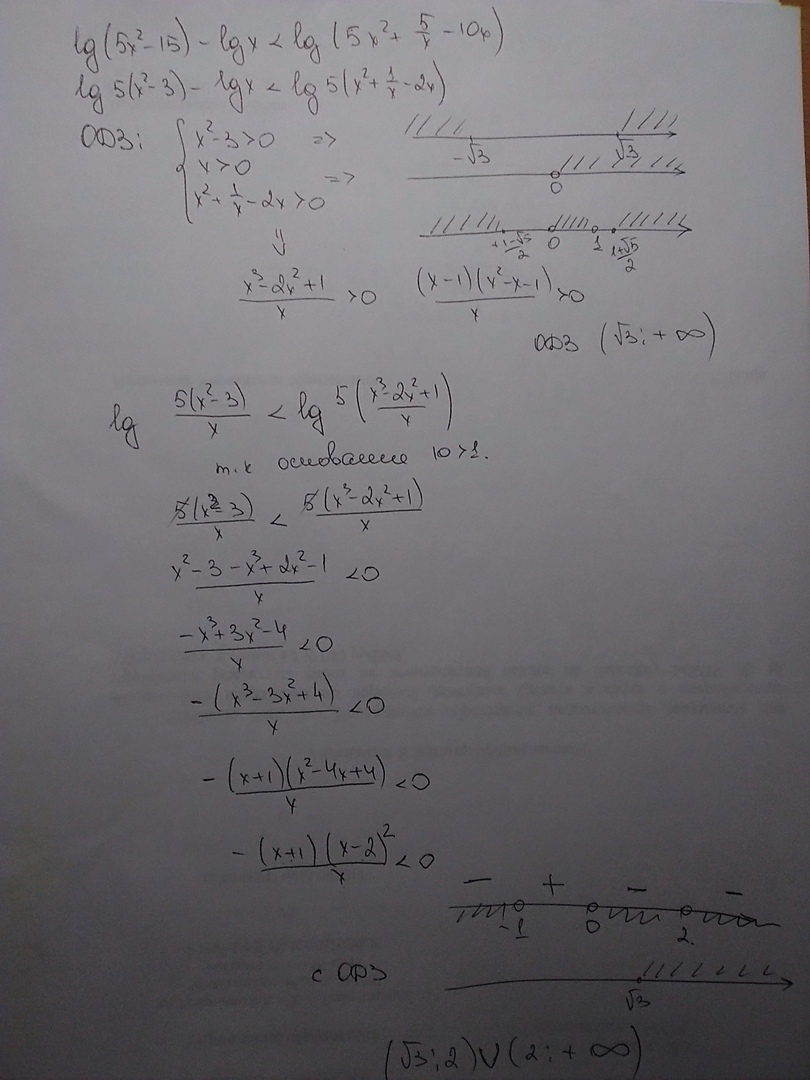 lg(5x²-15) - lgx < lg(5x² + 5/x - 10x)
lg 5(x²-3) - lgx < lg 5(x² + 1/x - 2x)
ОДЗ: { x²-3>0 =>
x>0
x² + 1/x - 2x > 0 =>
-√3 √3
0
+1-√5/2 0 1 1+√5/2
x³-2x²+1/x > 0 (x-1)(x²-x-1)/x > 0
ОДЗ (√3; +∞)
lg 5(x²-3)/x < lg 5(x³-2x²+1/x)
т.к основание 10>1.
5(x²-3)/x < 5(x³-2x²+1)/x
x²-3-x³+2x²-1/x < 0
-x³+3x²-4/x < 0
-(x³-3x²+4)/x < 0
-(x+1)(x²-4x+4)/x < 0
-(x+1)(x-2)²/x < 0
- + - -
-1 0 2.
с ОДЗ
√3
(√3; 2)∪(2; +∞)